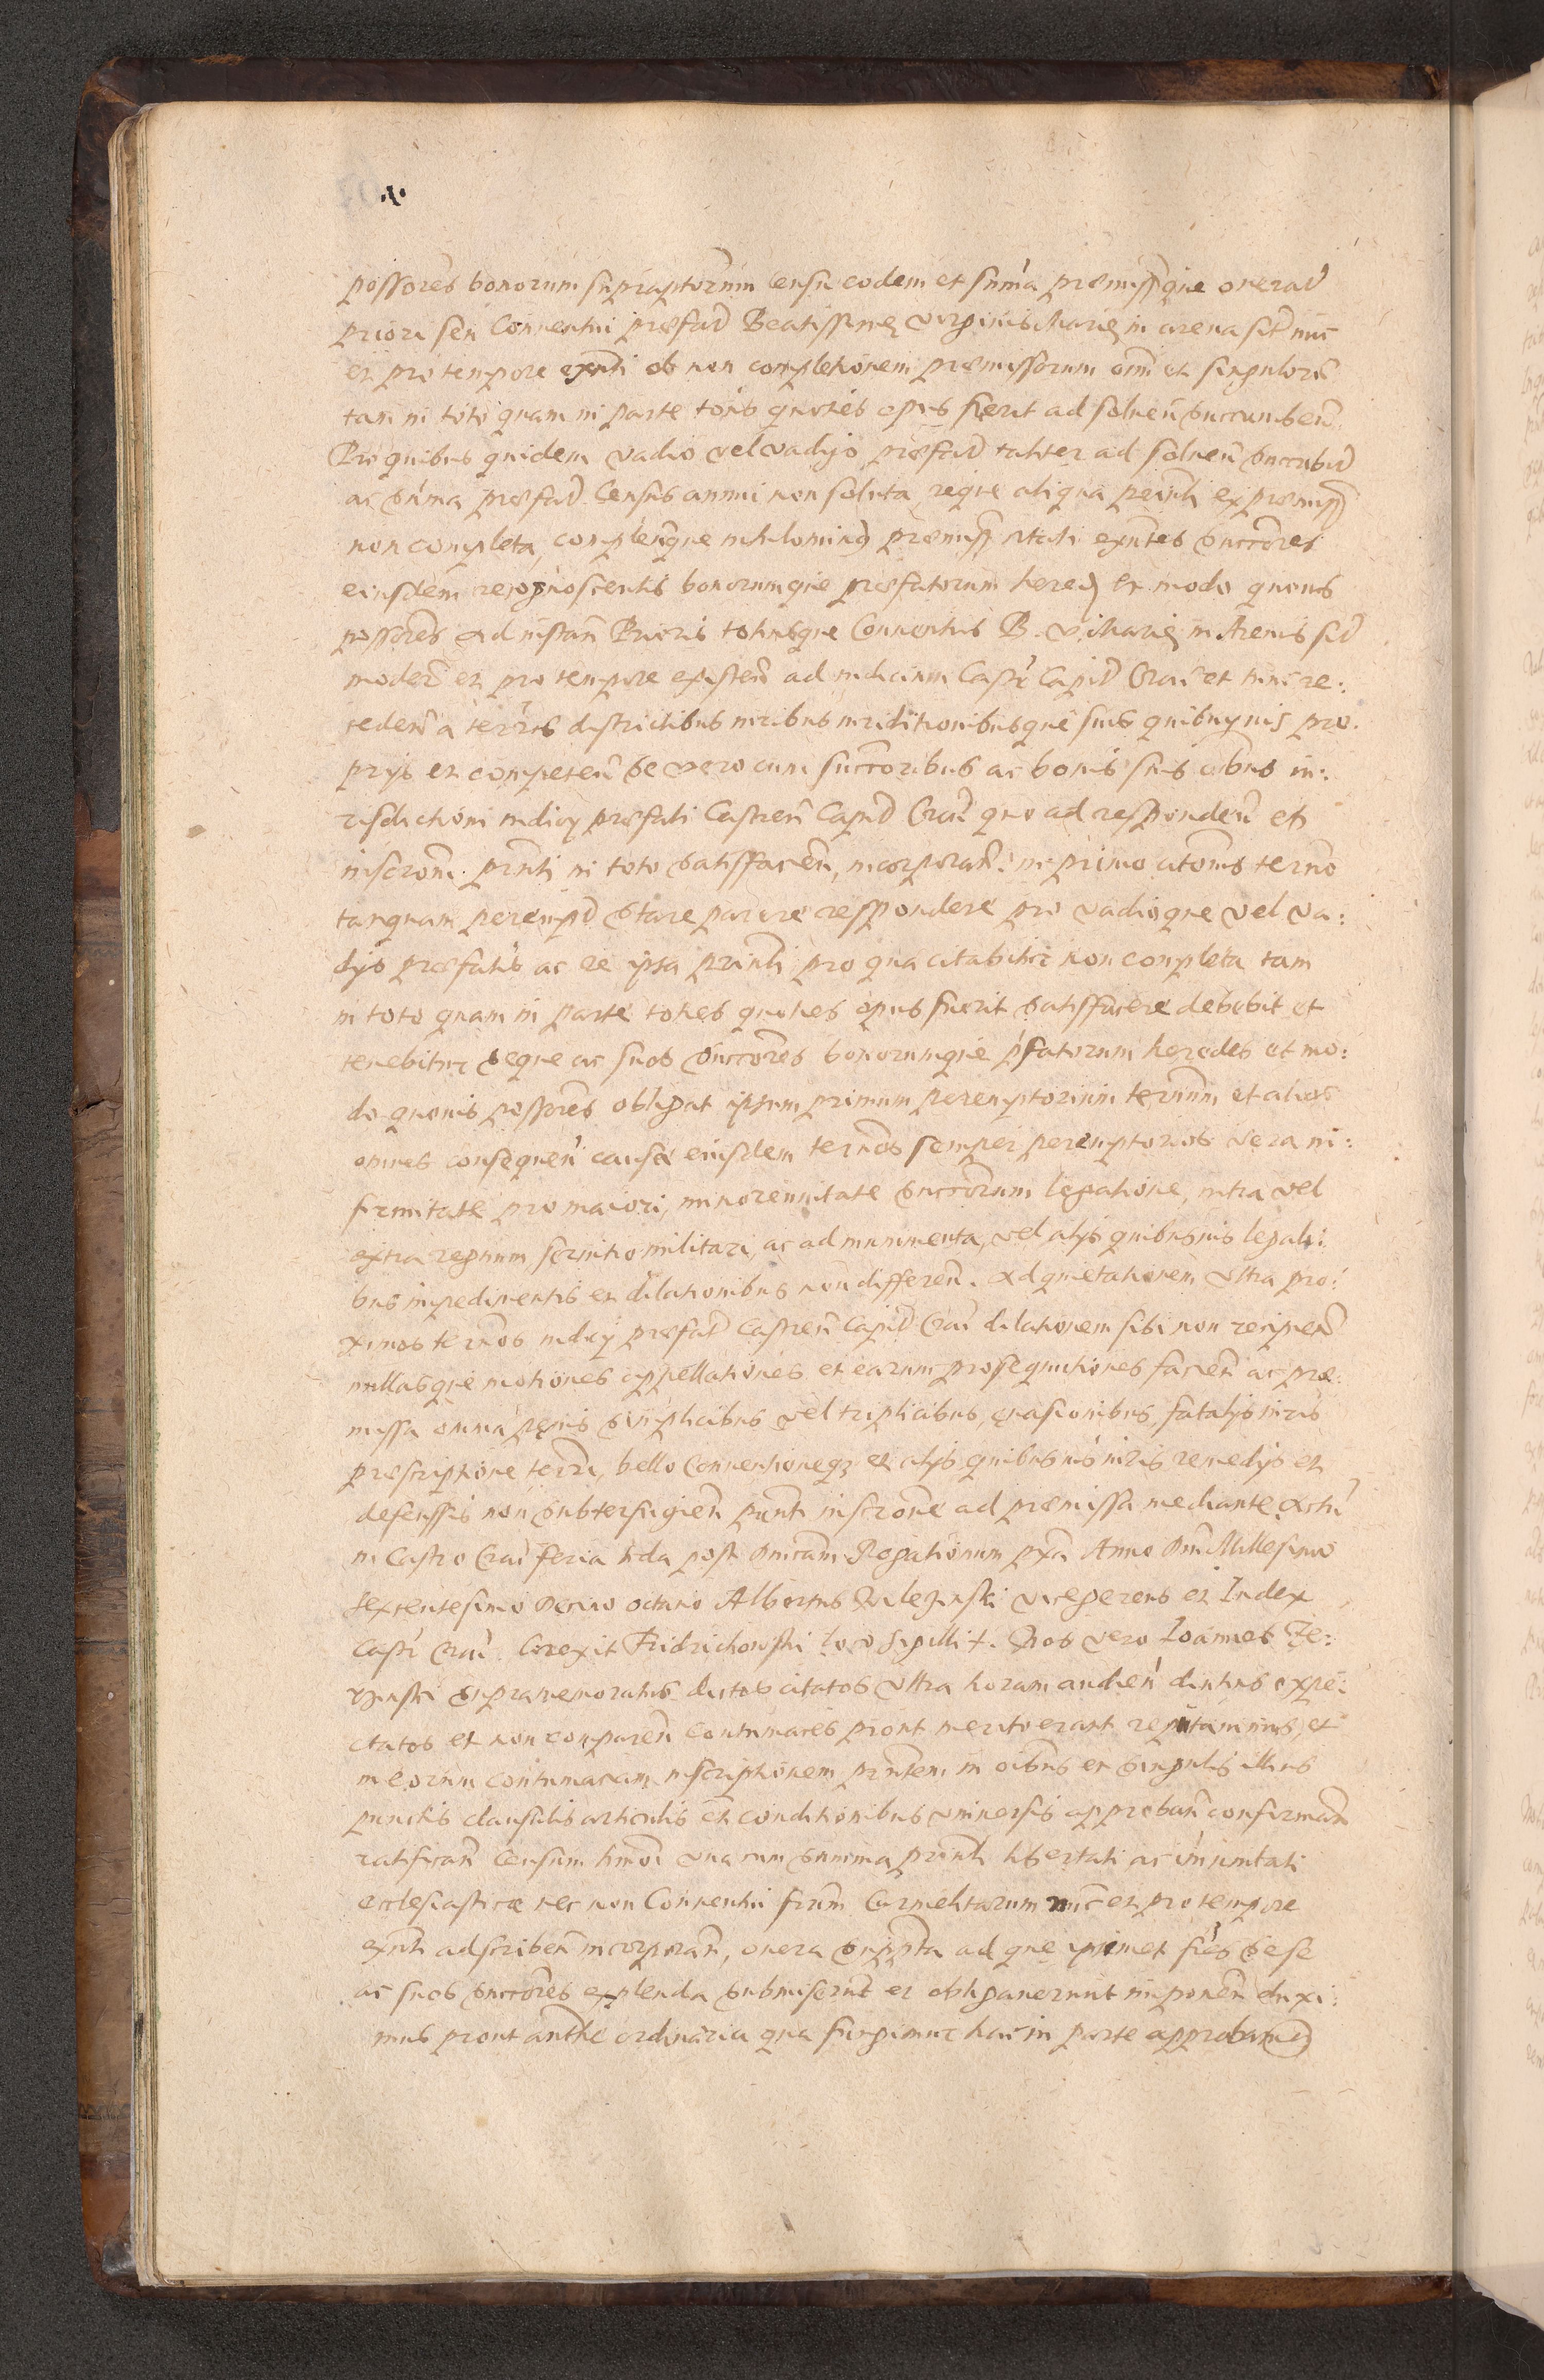 possores bonorum suprascptorum censu eodem et sum̃a præmissisque onerat̃
priori seu Conventui præfat̃ Beatissimę Virginis Marię in arena sit̃ nuc̃
et pro tempore exn̄ti ob non completionem præmissorum om̃ et singulorũ
tam in toto quam in parte toties quoties opus fuerit ad soluen̄ succumben̄.
Pro quibus quidem vadio vel vadijs præfat̃ taliter ad soluen̄ succubit̃
ac sum̃a præfat̃ Census annui non soluta reque aliqua præñti ex præmiss̃
non completa, complen̄que nihilominus præmiss̃ citati exn̄tes succ̃ores
eiusdem recognoscentis bonorumque præfatorum hered̃ et modo quouis
possores ad instan̄ Prioris totiusque Conuentus B. V. Marię in Arenis sit̃
modern̄ et pro tempore existen̄ ad iudicium Castr̃ Capit̃ Crac̃ et tunc re:
cedens̃ a terris districtibus iuribus iurisditionibusque suis quibusuis pro:
prijs et competen̄ se vero cum succ̃oribus ac bonis suis oĩbus iu:
risdictioni iudicij præfati Castren̄ Capit̃ Crac̃ quo ad responden̄ et
inscr̃oni prn̄ti in toto satisfacien̄, incorporan̄. in primo citati̇onis termo
tanquam perempt̃ stare parere respondere pro vadioque vel va:
dijs præfatis ac re ipsa prn̄ti pro qua citabitur non completa tam
in toto quam in parte toties quoties opus fuerit satisfacere debebit et
tenebitur seque ac suos succ̃ores bonorumque p̃fatorum heredes et mo:
do quouis possores obligat ipsum primum peremptorium term̃um et alios
omnes consequen̄ causæ eiusdem term̃os semper peremptorios vera in:
firmitate pro maiori, minorennitate succ̃orum legatione, intra vel
extra regnum seruitio militari, ac ad munimenta, vel alijs quibusuis legali:
bus impedimentis et dilationibus non differen̄. Ad quietationem ultra pro:
ximos term̃os iudicij præfat̃ Castren̄ Capit̃ Crac̃ dilationem sibi non recipien̄
nullasque motiones appellationes et earum prosequutiones facien̄ ac præ:
missa omnia pęnis simplicibus vel triplicibus, euasionibus, fatalijs iuris
præscriptione terr̃, bello Conuentioneq̃ et alijs quibusuis iuris remedijs et
defenssis non subterfugien̄ prn̄ti inscr̃one ad præmissa mediante. Actũ
in Castro Crac̃ feria 2da post Dnicam Rogationum pxã Anno Dni Millesimo
sexcentesimo Decimo octauo Albertus Gulczinski vicegerens et Iudex
Castr̃ Crac̃. Corexit Fridrichowski locus sigilli +. Nos vero Ioannes Ze:
rzinski supramemoratus dictos citatos ultra horam audien̄ diutius expe:
ctatos et non comparen̄ contumaces prout merito erant reputauimus, et
in eorum contumaciam, inscriptionem prn̄tem in oĩbus et singulis illius
punctis clausulis articulis et conditionibus vniuersis approban̄ confirman̄
ratifican̄ Censum hmõi una cum summa prn̄ti libertati ac immunitati
ecclesiasticæ nec non Conuentui frũm Carmelitarum nuc̃ et pro tempore
exn̄ti adscriben̄ incorporan̄, onera suppn̄ta ad quę ipsimet fr̃es sese
ac suos succ̃ores explenda submiserunt et obligauerunt imponen̄ duxi:
mus prout autħte ordinaria qua fungimur hac in parte approbamus